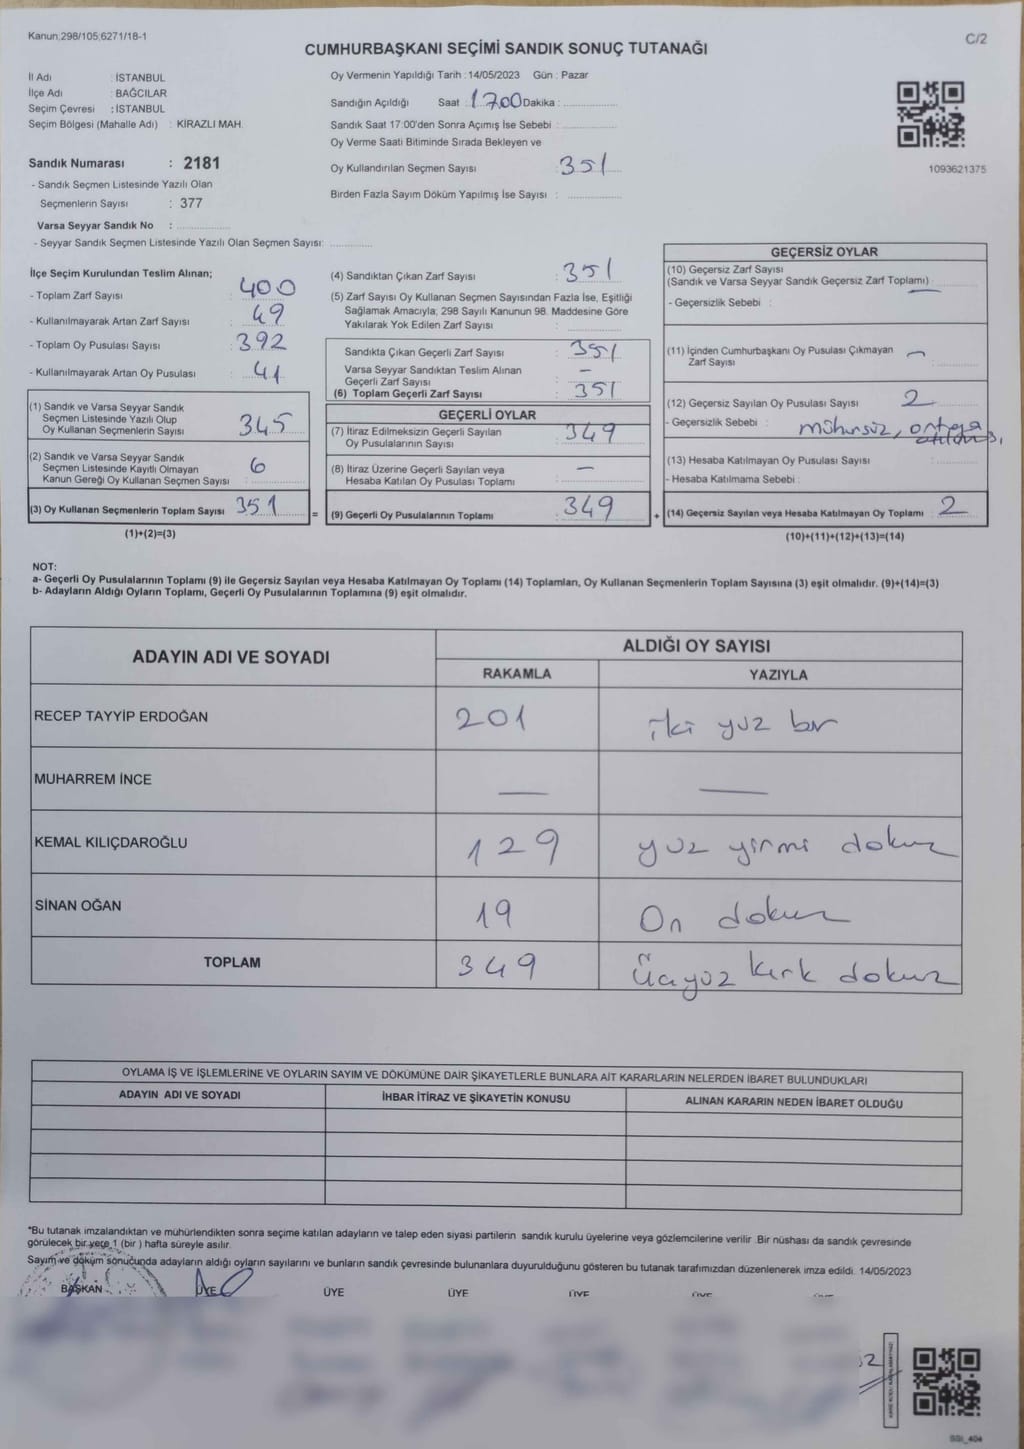 Kanun:298/105;6271/18-1
C/2
CUMHURBAŞKANI SEÇİMİ SANDIK SONUÇ TUTANAĞI
İl Adı : İSTANBUL
İlçe Adı : BAĞCILAR
Seçim Çevresi : İSTANBUL
Seçim Bölgesi (Mahalle Adı) : KİRAZLI MAH.
Sandık Numarası : 2181
- Sandık Seçmen Listesinde Yazılı Olan
Seçmenlerin Sayısı : 377
Varsa Seyyar Sandık No :
- Seyyar Sandık Seçmen Listesinde Yazılı Olan Seçmen Sayısı:
Oy Vermenin Yapıldığı Tarih : 14/05/2023 Gün : Pazar
Sandığın Açıldığı Saat : 17.00 Dakika :
Sandık Saat 17:00'den Sonra Açımış İse Sebebi :
Oy Verme Saati Bitiminde Sırada Bekleyen ve
Oy Kullandırılan Seçmen Sayısı : 351
Birden Fazla Sayım Döküm Yapılmış İse Sayısı :
1093621375
İlçe Seçim Kurulundan Teslim Alınan;
- Toplam Zarf Sayısı : 400
- Kullanılmayarak Artan Zarf Sayısı : 49
- Toplam Oy Pusulası Sayısı : 392
- Kullanılmayarak Artan Oy Pusulası : 41
(1) Sandık ve Varsa Seyyar Sandık
Seçmen Listesinde Yazılı Olup
Oy Kullanan Seçmenlerin Sayısı : 345
(2) Sandık ve Varsa Seyyar Sandık
Seçmen Listesinde Kayıtlı Olmayan
Kanun Gereği Oy Kullanan Seçmen Sayısı : 6
(3) Oy Kullanan Seçmenlerin Toplam Sayısı 351
(1)+(2)=(3)
(4) Sandıktan Çıkan Zarf Sayısı : 351
(5) Zarf Sayısı Oy Kullanan Seçmen Sayısından Fazla İse, Eşitliği
Sağlamak Amacıyla; 298 Sayılı Kanunun 98. Maddesine Göre
Yakılarak Yok Edilen Zarf Sayısı :
Sandıkta Çıkan Geçerli Zarf Sayısı : 351
Varsa Seyyar Sandıktan Teslim Alınan
Geçerli Zarf Sayısı : –
(6) Toplam Geçerli Zarf Sayısı : 351
GEÇERLİ OYLAR
(7) İtiraz Edilmeksizin Geçerli Sayılan
Oy Pusulalarının Sayısı : 349
(8) İtiraz Üzerine Geçerli Sayılan veya
Hesaba Katılan Oy Pusulası Toplamı : –
= (9) Geçerli Oy Pusulalarının Toplamı : 349
GEÇERSİZ OYLAR
(10) Geçersiz Zarf Sayısı
(Sandık ve Varsa Seyyar Sandık Geçersiz Zarf Toplamı) : –
- Geçersizlik Sebebi :
(11) İçinden Cumhurbaşkanı Oy Pusulası Çıkmayan
Zarf Sayısı : –
(12) Geçersiz Sayılan Oy Pusulası Sayısı : 2
- Geçersizlik Sebebi : mühürsüz, ortaya
(13) Hesaba Katılmayan Oy Pusulası Sayısı :
- Hesaba Katılmama Sebebi :
+ (14) Geçersiz Sayılan veya Hesaba Katılmayan Oy Toplamı : 2
(10)+(11)+(12)+(13)=(14)
NOT:
a- Geçerli Oy Pusulalarının Toplamı (9) ile Geçersiz Sayılan veya Hesaba Katılmayan Oy Toplamı (14) Toplamları, Oy Kullanan Seçmenlerin Toplam Sayısına (3) eşit olmalıdır. (9)+(14)=(3)
b- Adayların Aldığı Oyların Toplamı, Geçerli Oy Pusulalarının Toplamına (9) eşit olmalıdır.
ADAYIN ADI VE SOYADI
ALDIĞI OY SAYISI
RAKAMLA YAZIYLA
RECEP TAYYİP ERDOĞAN 201 iki yuz bir
MUHARREM İNCE — —
KEMAL KILIÇDAROĞLU 129 yuz yirmi dokuz
SİNAN OĞAN 19 On dokuz
TOPLAM 349 Üçyüz kırk dokuz
OYLAMA İŞ VE İŞLEMLERİNE VE OYLARIN SAYIM VE DÖKÜMÜNE DAİR ŞİKAYETLERLE BUNLARA AİT KARARLARIN NELERDEN İBARET BULUNDUKLARI
ADAYIN ADI VE SOYADI İHBAR İTİRAZ VE ŞİKAYETİN KONUSU ALINAN KARARIN NEDEN İBARET OLDUĞU
*Bu tutanak imzalandıktan ve mühürlendikten sonra seçime katılan adayların ve talep eden siyasi partilerin sandık kurulu üyelerine veya gözlemcilerine verilir. Bir nüshası da sandık çevresinde
görülecek bir yere 1 (bir ) hafta süreyle asılır.
Sayım ve döküm sonucunda adayların aldığı oyların sayılarını ve bunların sandık çevresinde bulunanlara duyurulduğunu gösteren bu tutanak tarafımızdan düzenlenerek imza edildi. 14/05/2023
BAŞKAN ÜYE ÜYE ÜYE ÜYE ÜYE
SSI_404